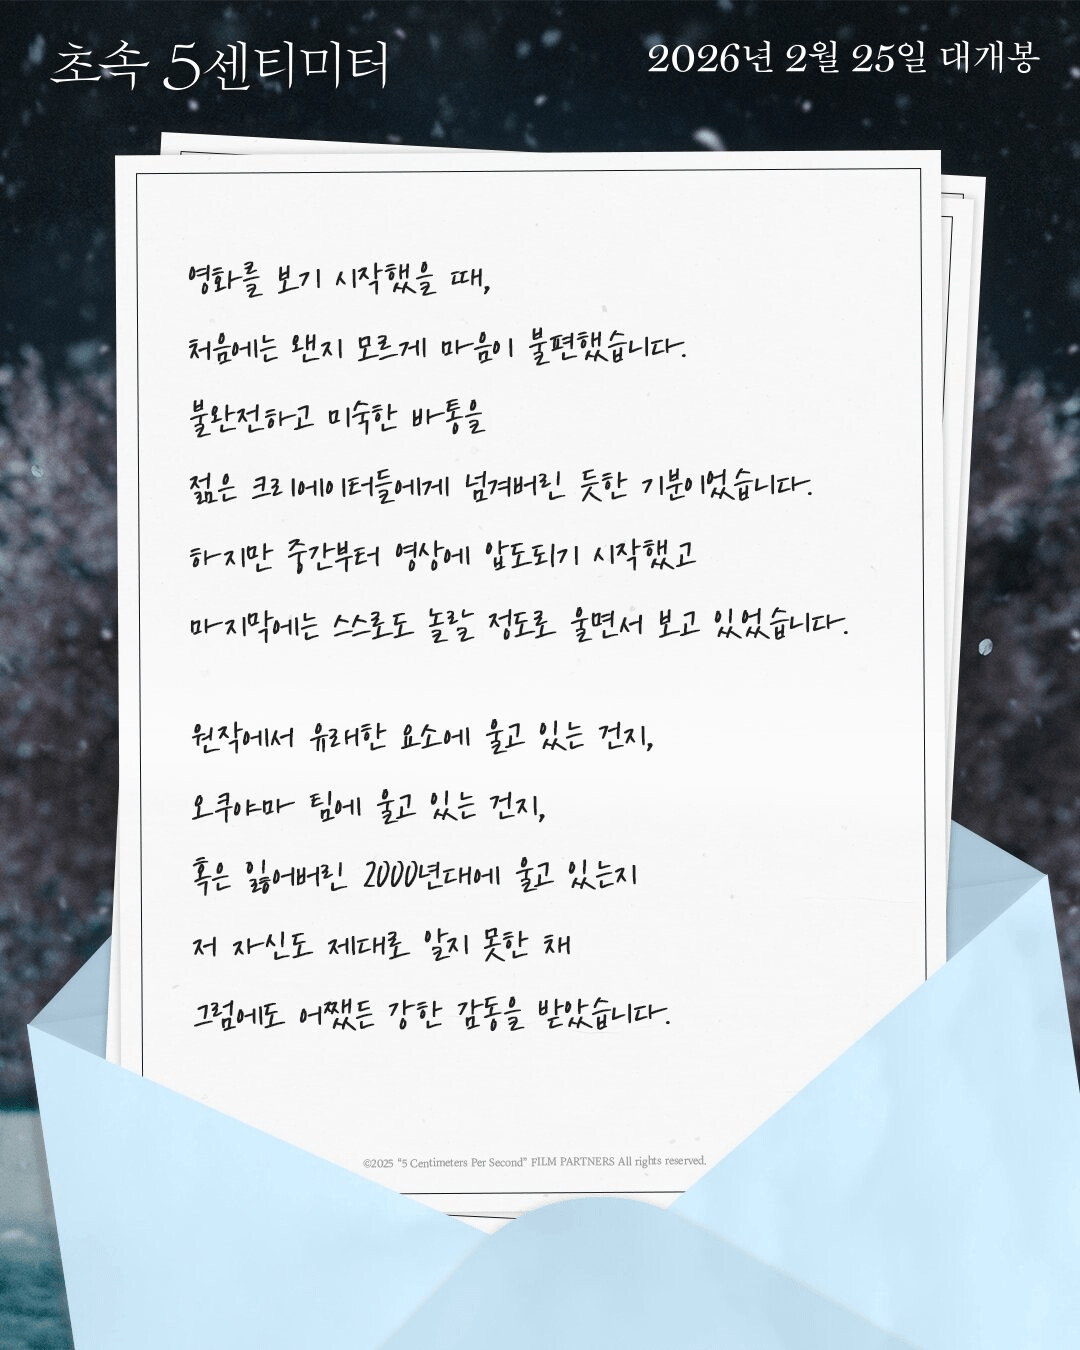 초속 5센티미터
2026년 2월 25일 대개봉
영화를 보기 시작했을 때,
처음에는 왠지 모르게 마음이 불편했습니다.
불완전하고 미숙한 바통을
젊은 크리에이터들에게 넘겨버린 듯한 기분이었습니다.
하지만 중간부터 영상에 압도되기 시작했고
마지막에는 스스로도 놀랄 정도로 울면서 보고 있었습니다.
원작에서 유래한 요소에 울고 있는 건지,
오쿠야마 팀에 울고 있는 건지,
혹은 잃어버린 2000년대에 울고 있는지
저 자신도 제대로 알지 못한 채
그럼에도 어쨌든 강한 감동을 받았습니다.
©2025 “5 Centimeters Per Second” FILM PARTNERS All rights reserved.